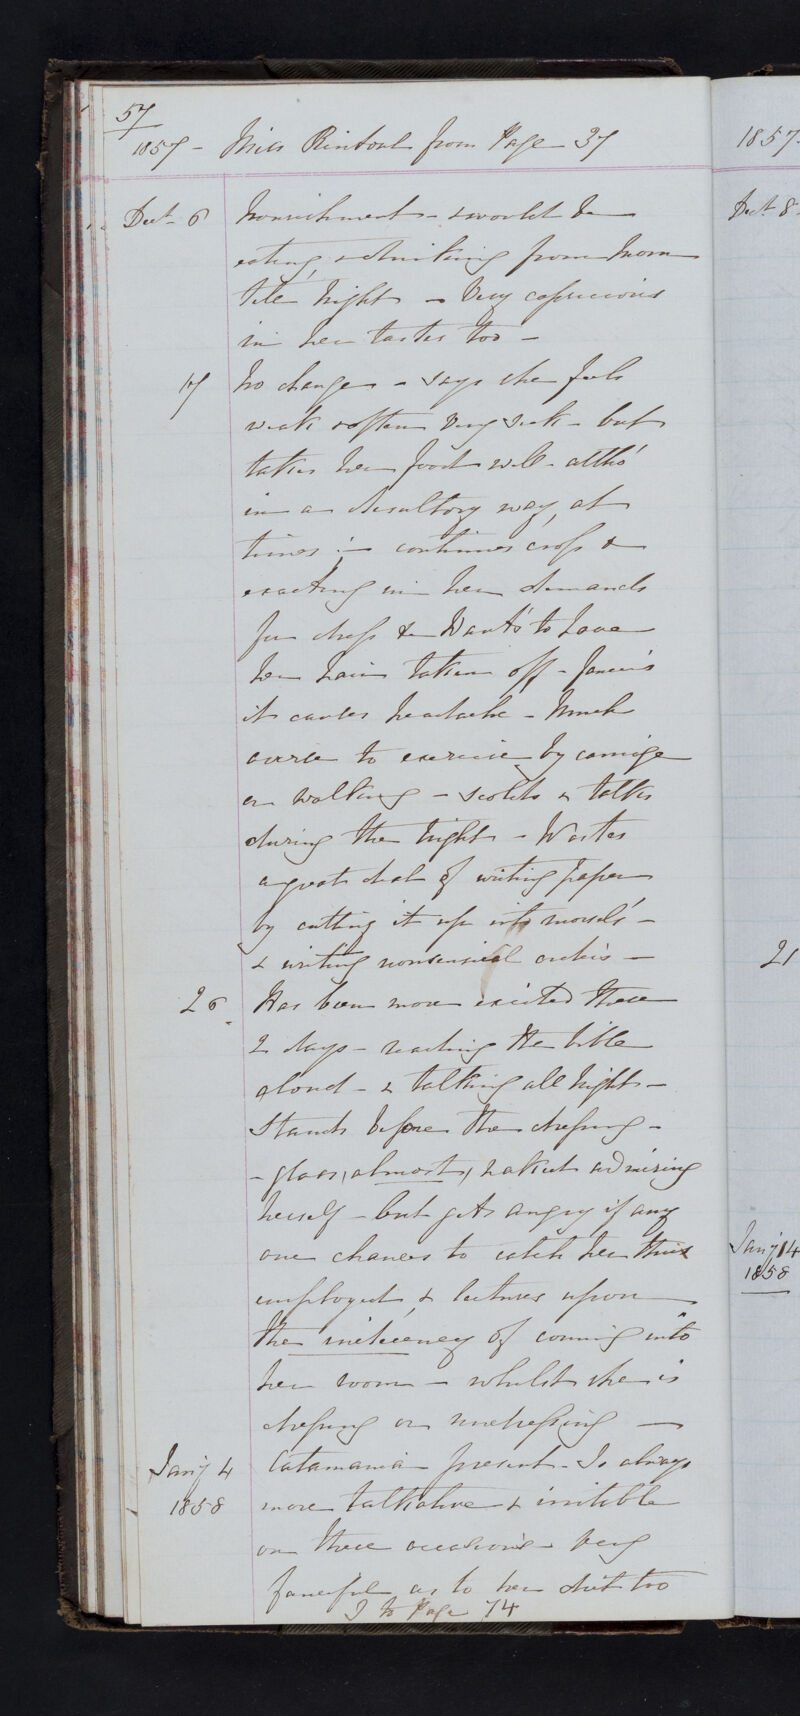 57
1857 - Miss Rintoul from Page 37
Dect. 6 Nourishment - & would be
eating & drinking from Morn
till Night - Very capricious
in her tastes too -
17 No change - says she feels
weak & often very sick - but
takes her food well - altho'
in a desultory way, at
times :- continues cross &
exacting in her demands
for dress & Wants to have
her hair taken off - fancies
it causes headache - Much
averse to exercise by carriage
or walking - scolds & talks
during the Night - Wastes
a great deal of writing paper
by cutting it up into morsels -
& writing nonsensical orders -
26 Has been more excited these
2 days - reading the bible
aloud - & talking all night -
Stands before the dressing -
- glass, almost, naked admiring
herself - but gets angry if any
one chances to catch her thus
employed, & lectures upon
the indecency of coming into
her room - whilst she is
dressing or undressing -
Jany 4 Catamania present - Is always
1858 more talkative & irritible
on these occasions - very
fanciful as to her diet too
to Page 74
1857
Dect. 8
21
Jany 14
1858